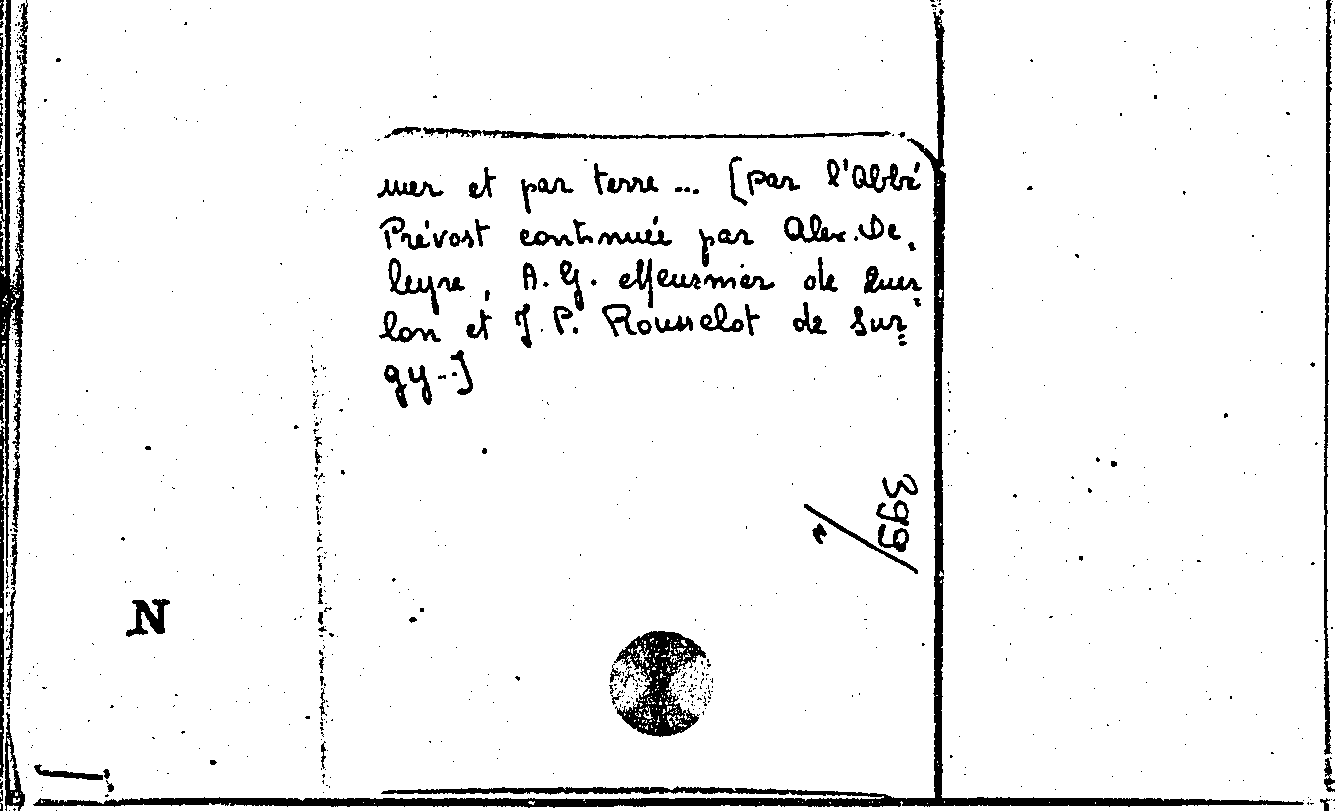 mer et par terre ... [par l'Abbé
Prévost continuée par Alex. De-
leyre, A. G. Meusnier de Quer-
lon et J. P. Rousselot de Sur-
gy...]
399
N